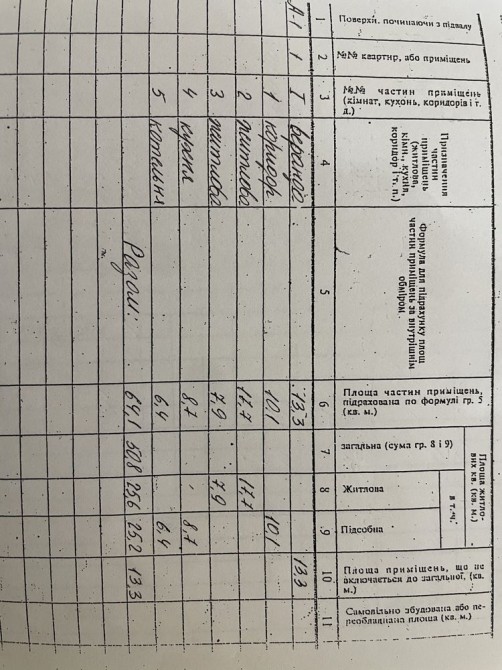 Поверхи, починаючи з підвалу
№№ квартир, або приміщень
№№ частин приміщень
(кімнат, кухонь, коридорів і т.
д.)
Призначення
частин
приміщень
(житлова,
кімн., кухня,
коридор і т. п.)
Формула для підрахунку площ
частин приміщень за внутрішнім
обміром
Площа частин приміщень,
підрахована по формулі гр. 5
(кв. м.)
Площа житло-
вих кв. (кв. м.)
загальна (сума гр. 8 і 9)
в т. ч.
Житлова
Підсобна
Площа приміщень, що не
включається до загальної, (кв.
м.)
Самовільно збудована або пе-
реобладнана площа (кв. м.)
1 2 3 4 5 6 7 8 9 10 11
А-1 1 I веранда 13,3 13.3
1 коридор 10.1 10.1
2 житлова 17.7 17.7
3 житлова 7.9 7.9
4 кухня 8,7 8.7
5 котельня 6.4 6.4
Разом: 64,1 50.8 25.6 25,2 13.3